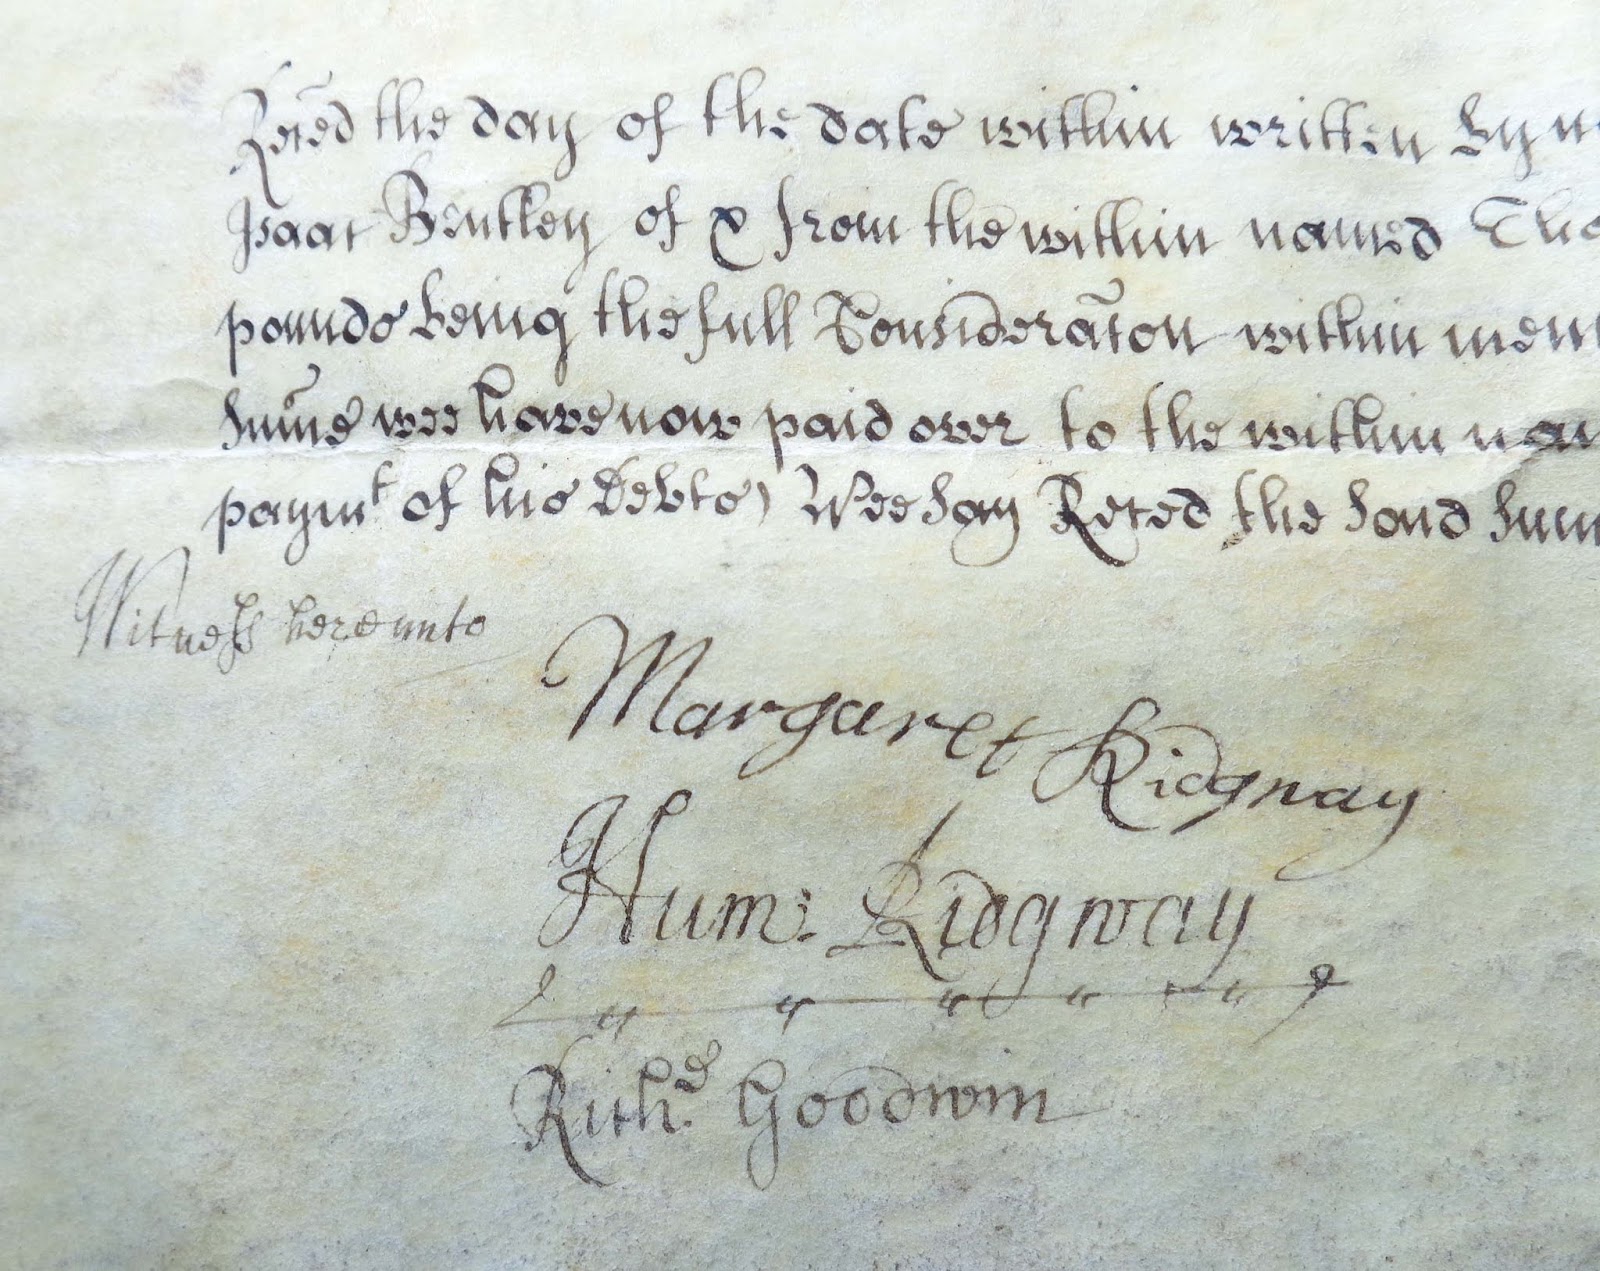 Reced the day of the date within written by
Isaac Bentley of & from the within named
pounds being the full Consideracon within
sume wee have now paid over to the within
paymt of his Debts) Wee say Reced the said
Witness hereunto
Margaret Ridgway
Hum: Ridgway
Richd. Goodwin